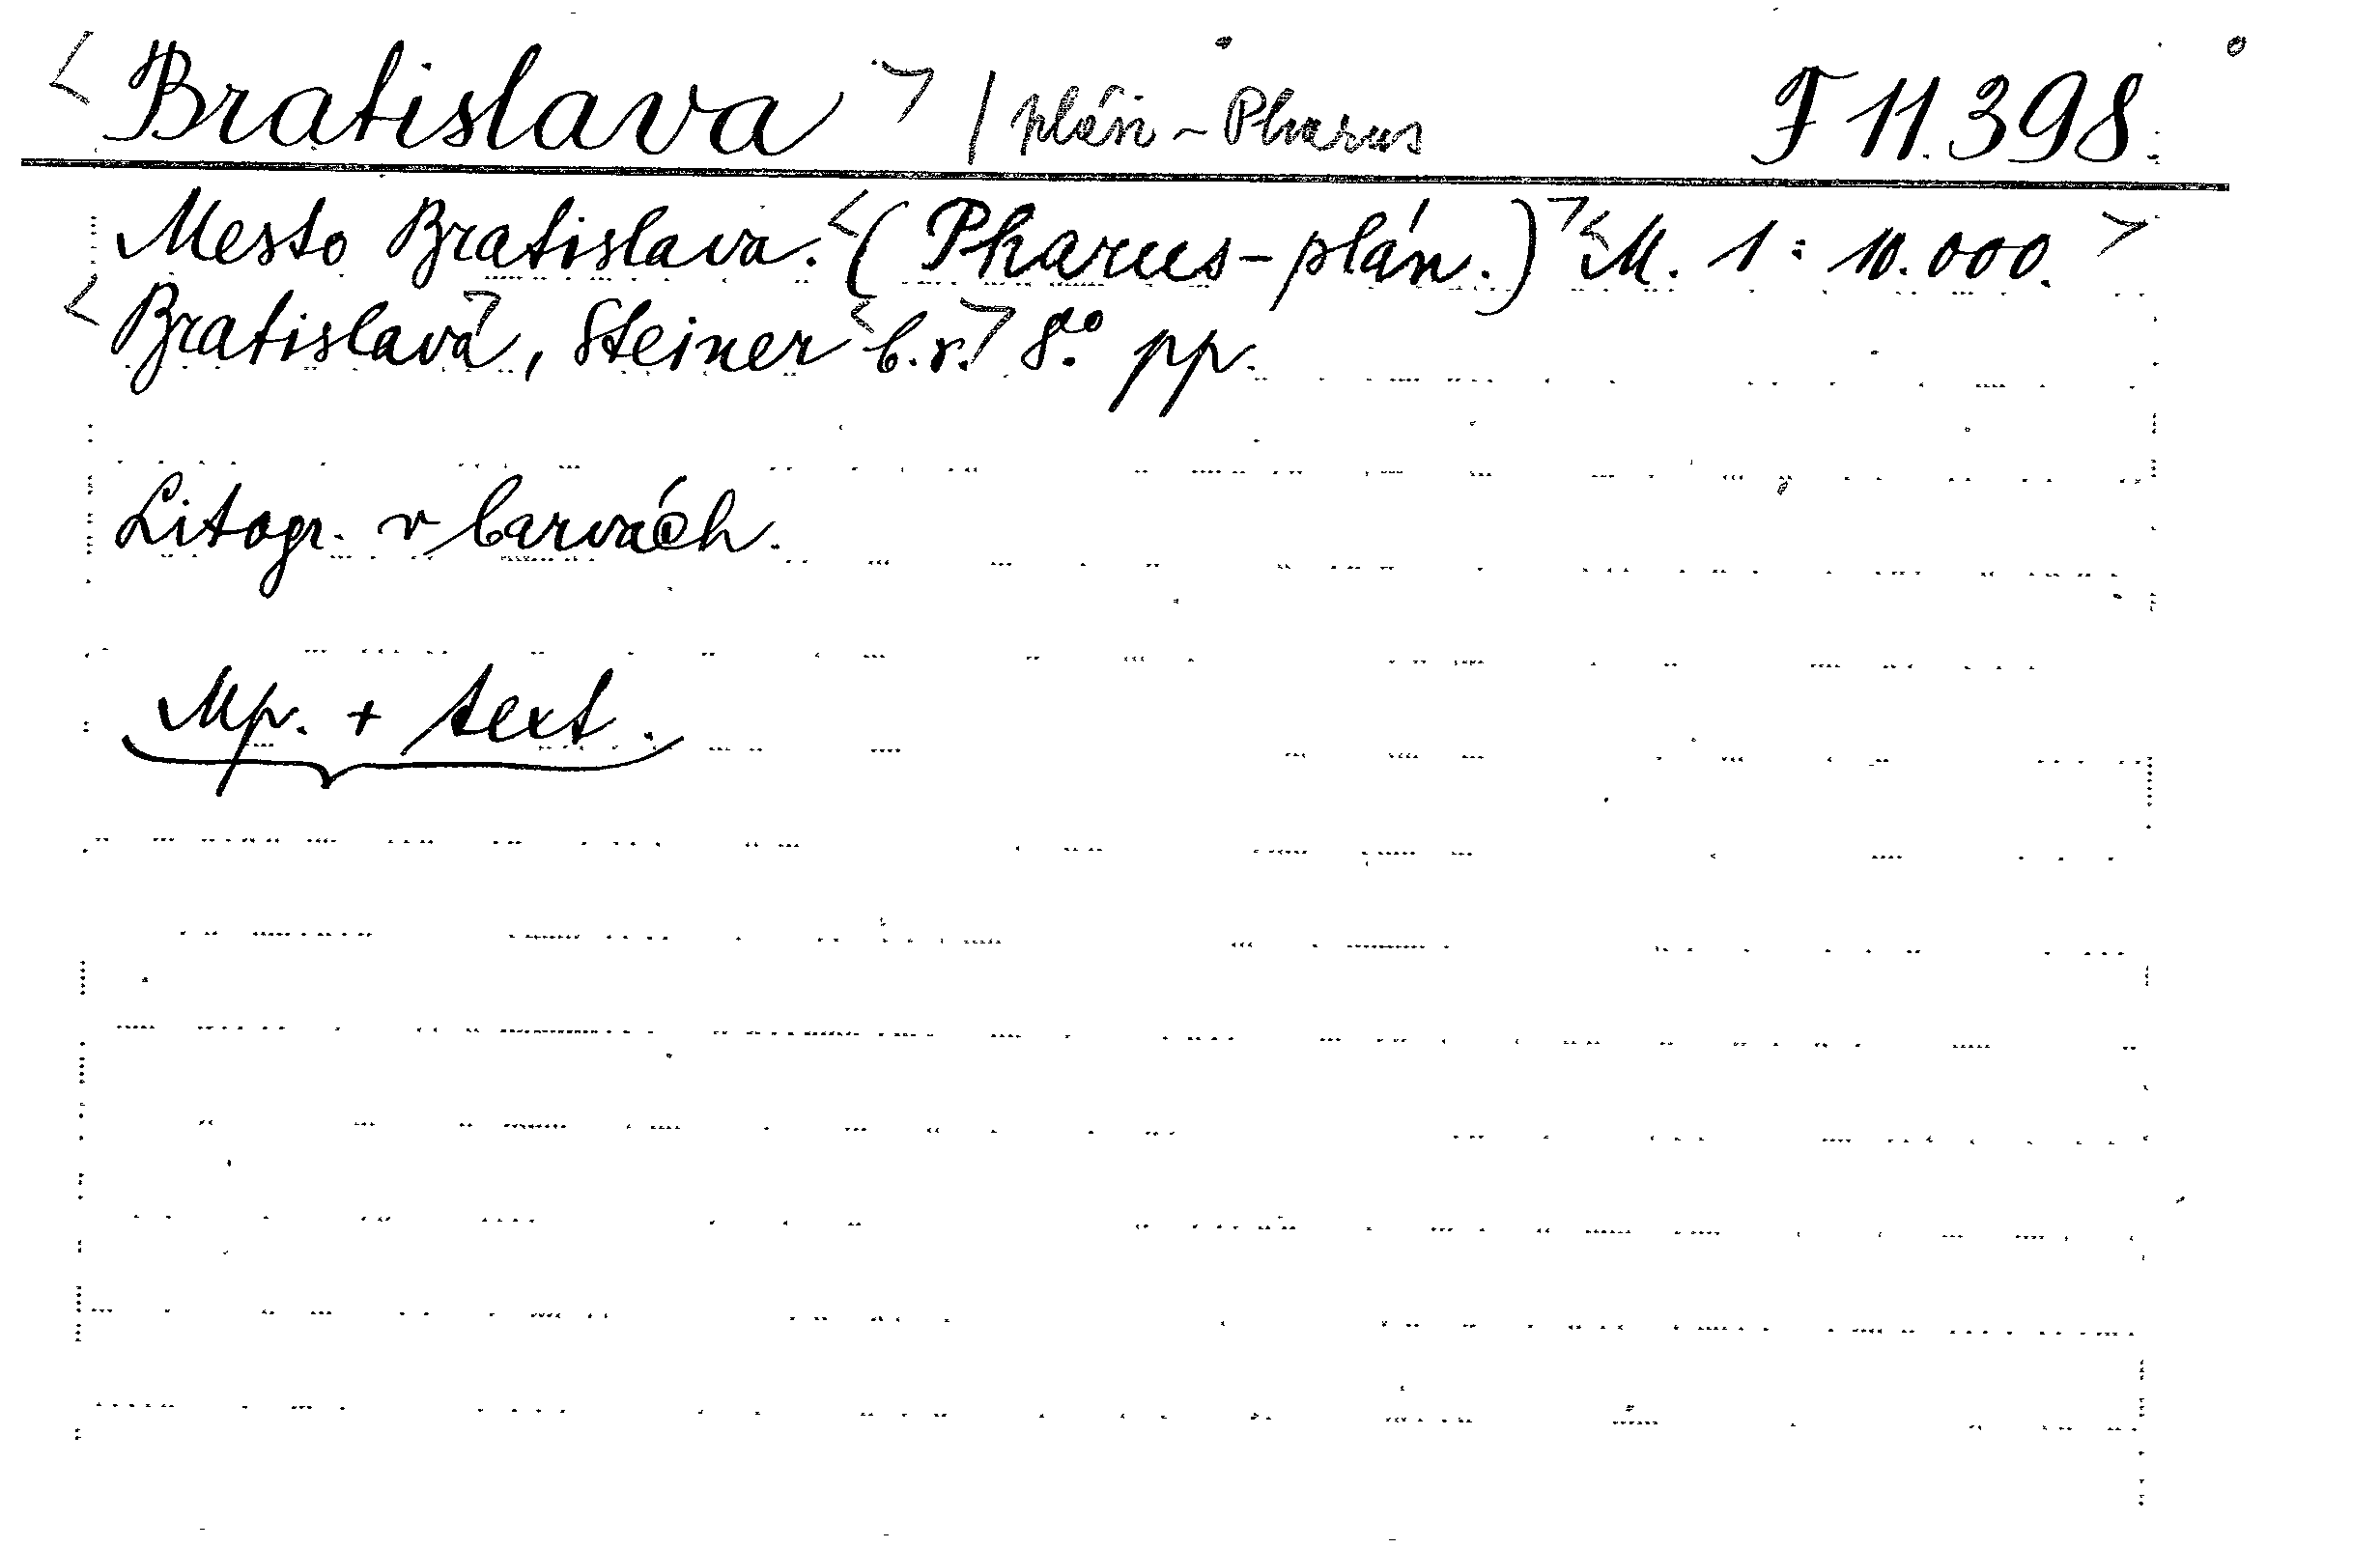 <Bratislava> / plán - Pharus F 11.398.
Mesto Bratislava. <(Pharus-plán.)> <M. 1 : 10.000.>
<Bratislava>, Steiner <b.r.> 8.° pp.
Litogr. v barvách.
Mp. + text.